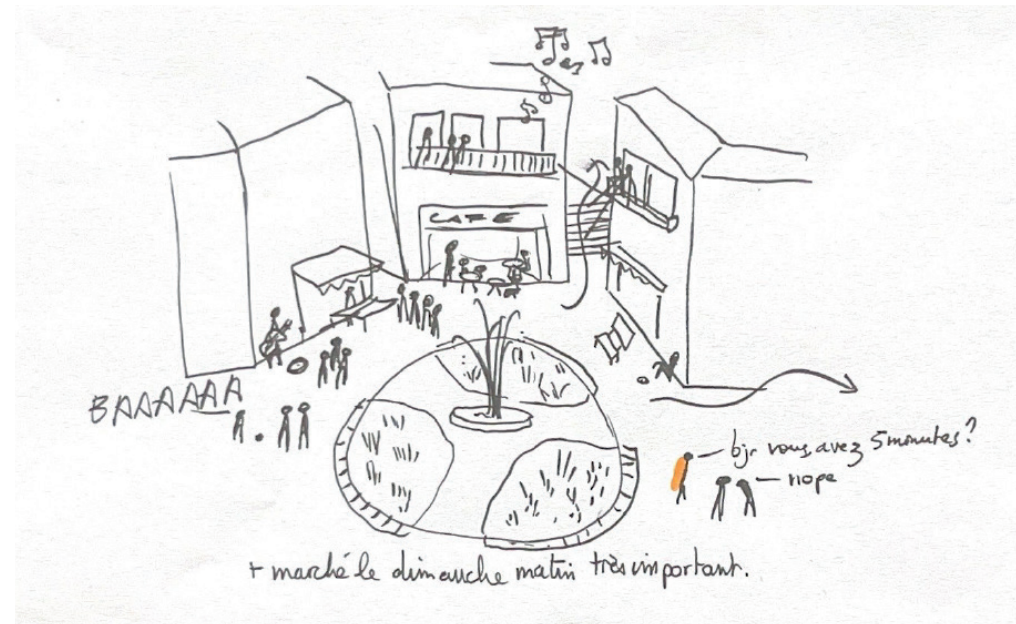 CAFE
BAAAAAA
bjr vous avez 5 minutes?
nope
+ marché le dimanche matin très important.